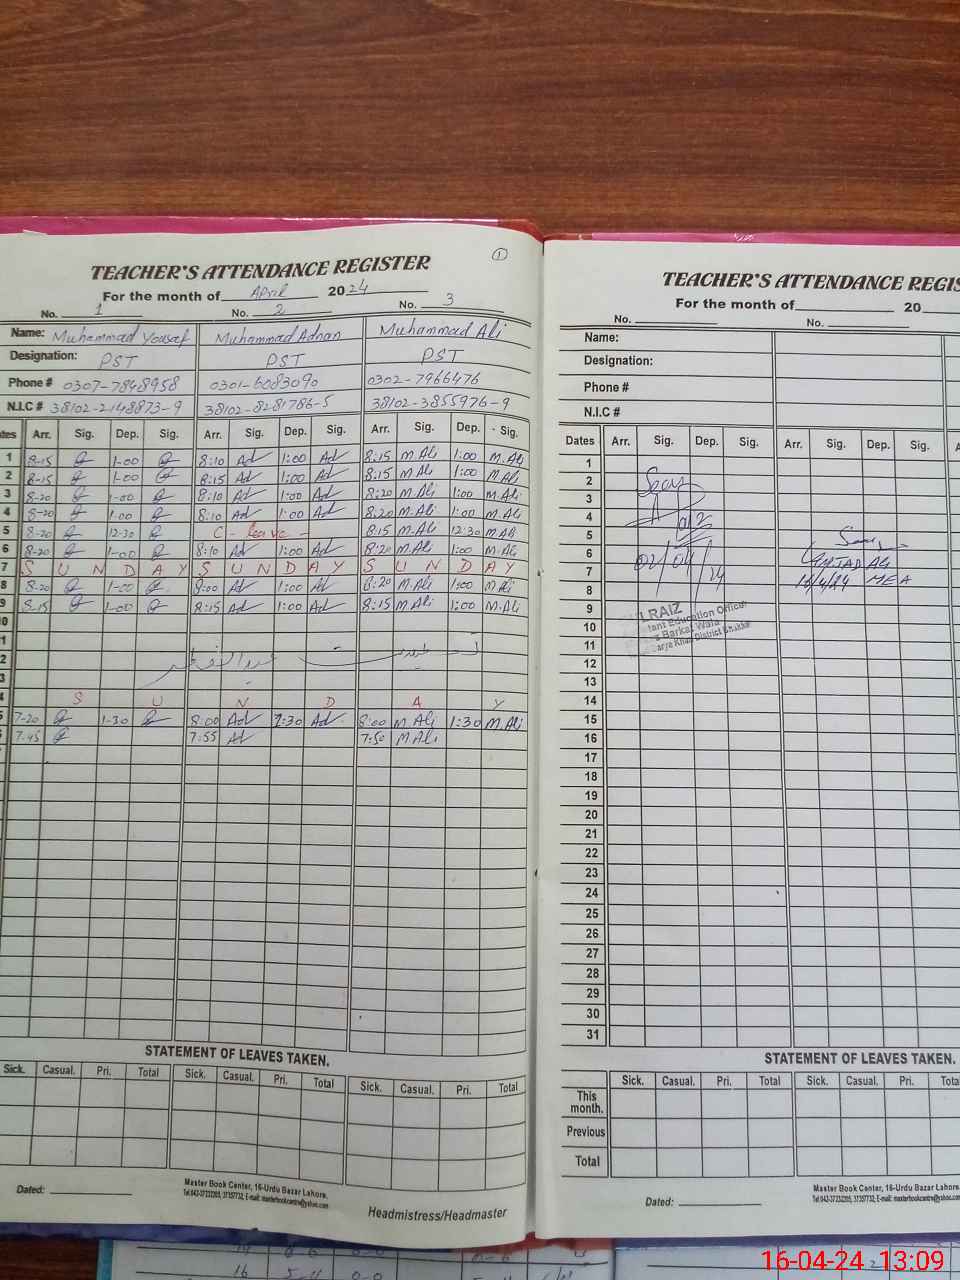 1
TEACHER'S ATTENDANCE REGISTER
For the month of April 2024
No. 1 No. 2 No. 3
Name: Muhammad Yousaf Muhammad Adnan Muhammad Ali
Designation: PST PST PST
Phone # 0307-7848958 0301-6083090 0302-7966476
N.I.C # 38102-2148873-9 38102-8281786-5 38102-3855976-9
Arr. Sig. Dep. Sig. Arr. Sig. Dep. Sig. Arr. Sig. Dep. Sig.
1 8-15 1-00 8:10 Ad 1:00 Ad 8:15 M.Ali 1:00 M.Ali
2 8-15 1-00 8:15 Ad 1:00 Ad 8:15 M.Ali 1:00 M.Ali
3 8-20 1-00 8:10 Ad 1:00 Ad 8:20 M.Ali 1:00 M.Ali
4 8-20 1-00 8:10 Ad 1:00 Ad 8:20 M.Ali 1:00 M.Ali
5 8-20 12-30 C-leave- 8:15 M.Ali 12:30 M.Ali
6 8-20 1-00 8:10 Ad 1:00 Ad 8:20 M.Ali 1:00 M.Ali
7 S U N D A Y S U N D A Y S U N D A Y
8 8-20 1-00 8:00 Ad 1:00 Ad 8:20 M.Ali 1:00 M.Ali
9 8-15 1-00 8:15 Ad 1:00 Ad 8:15 M.Ali 1:00 M.Ali
10
عیدالفطر
S U N D A Y
7-20 1-30 8:00 Ad Ad 8:00 M.Ali 1:30 M.Ali
7.45 7:55 Ad 7:50 M.Ali
STATEMENT OF LEAVES TAKEN.
Sick. Casual. Pri. Total Sick. Casual. Pri. Total Sick. Casual. Pri. Total
Dated:
Master Book Center, 16-Urdu Bazar Lahore.
Headmistress/Headmaster
TEACHER'S ATTENDANCE
For the month of 20
No. No.
Name:
Designation:
Phone #
N.I.C #
Dates Arr. Sig. Dep. Sig. Arr. Sig. Dep. Sig.
1
2
3
4
5
6
7
8
9
10
11
12
13
14
15
16
17
18
19
20
21
22
23
24
25
26
27
28
29
30
31
02/04/24
AMJAD ALI
16/4/24 MEA
Education Officer
Barkat Wala
District Bhakkar
STATEMENT OF LEAVES TAKEN.
Sick. Casual. Pri. Total Sick. Casual. Pri.
This month.
Previous
Total
Dated:
Master Book Center, 16-Urdu Bazar Lahore.
16
16-04-24 13:09